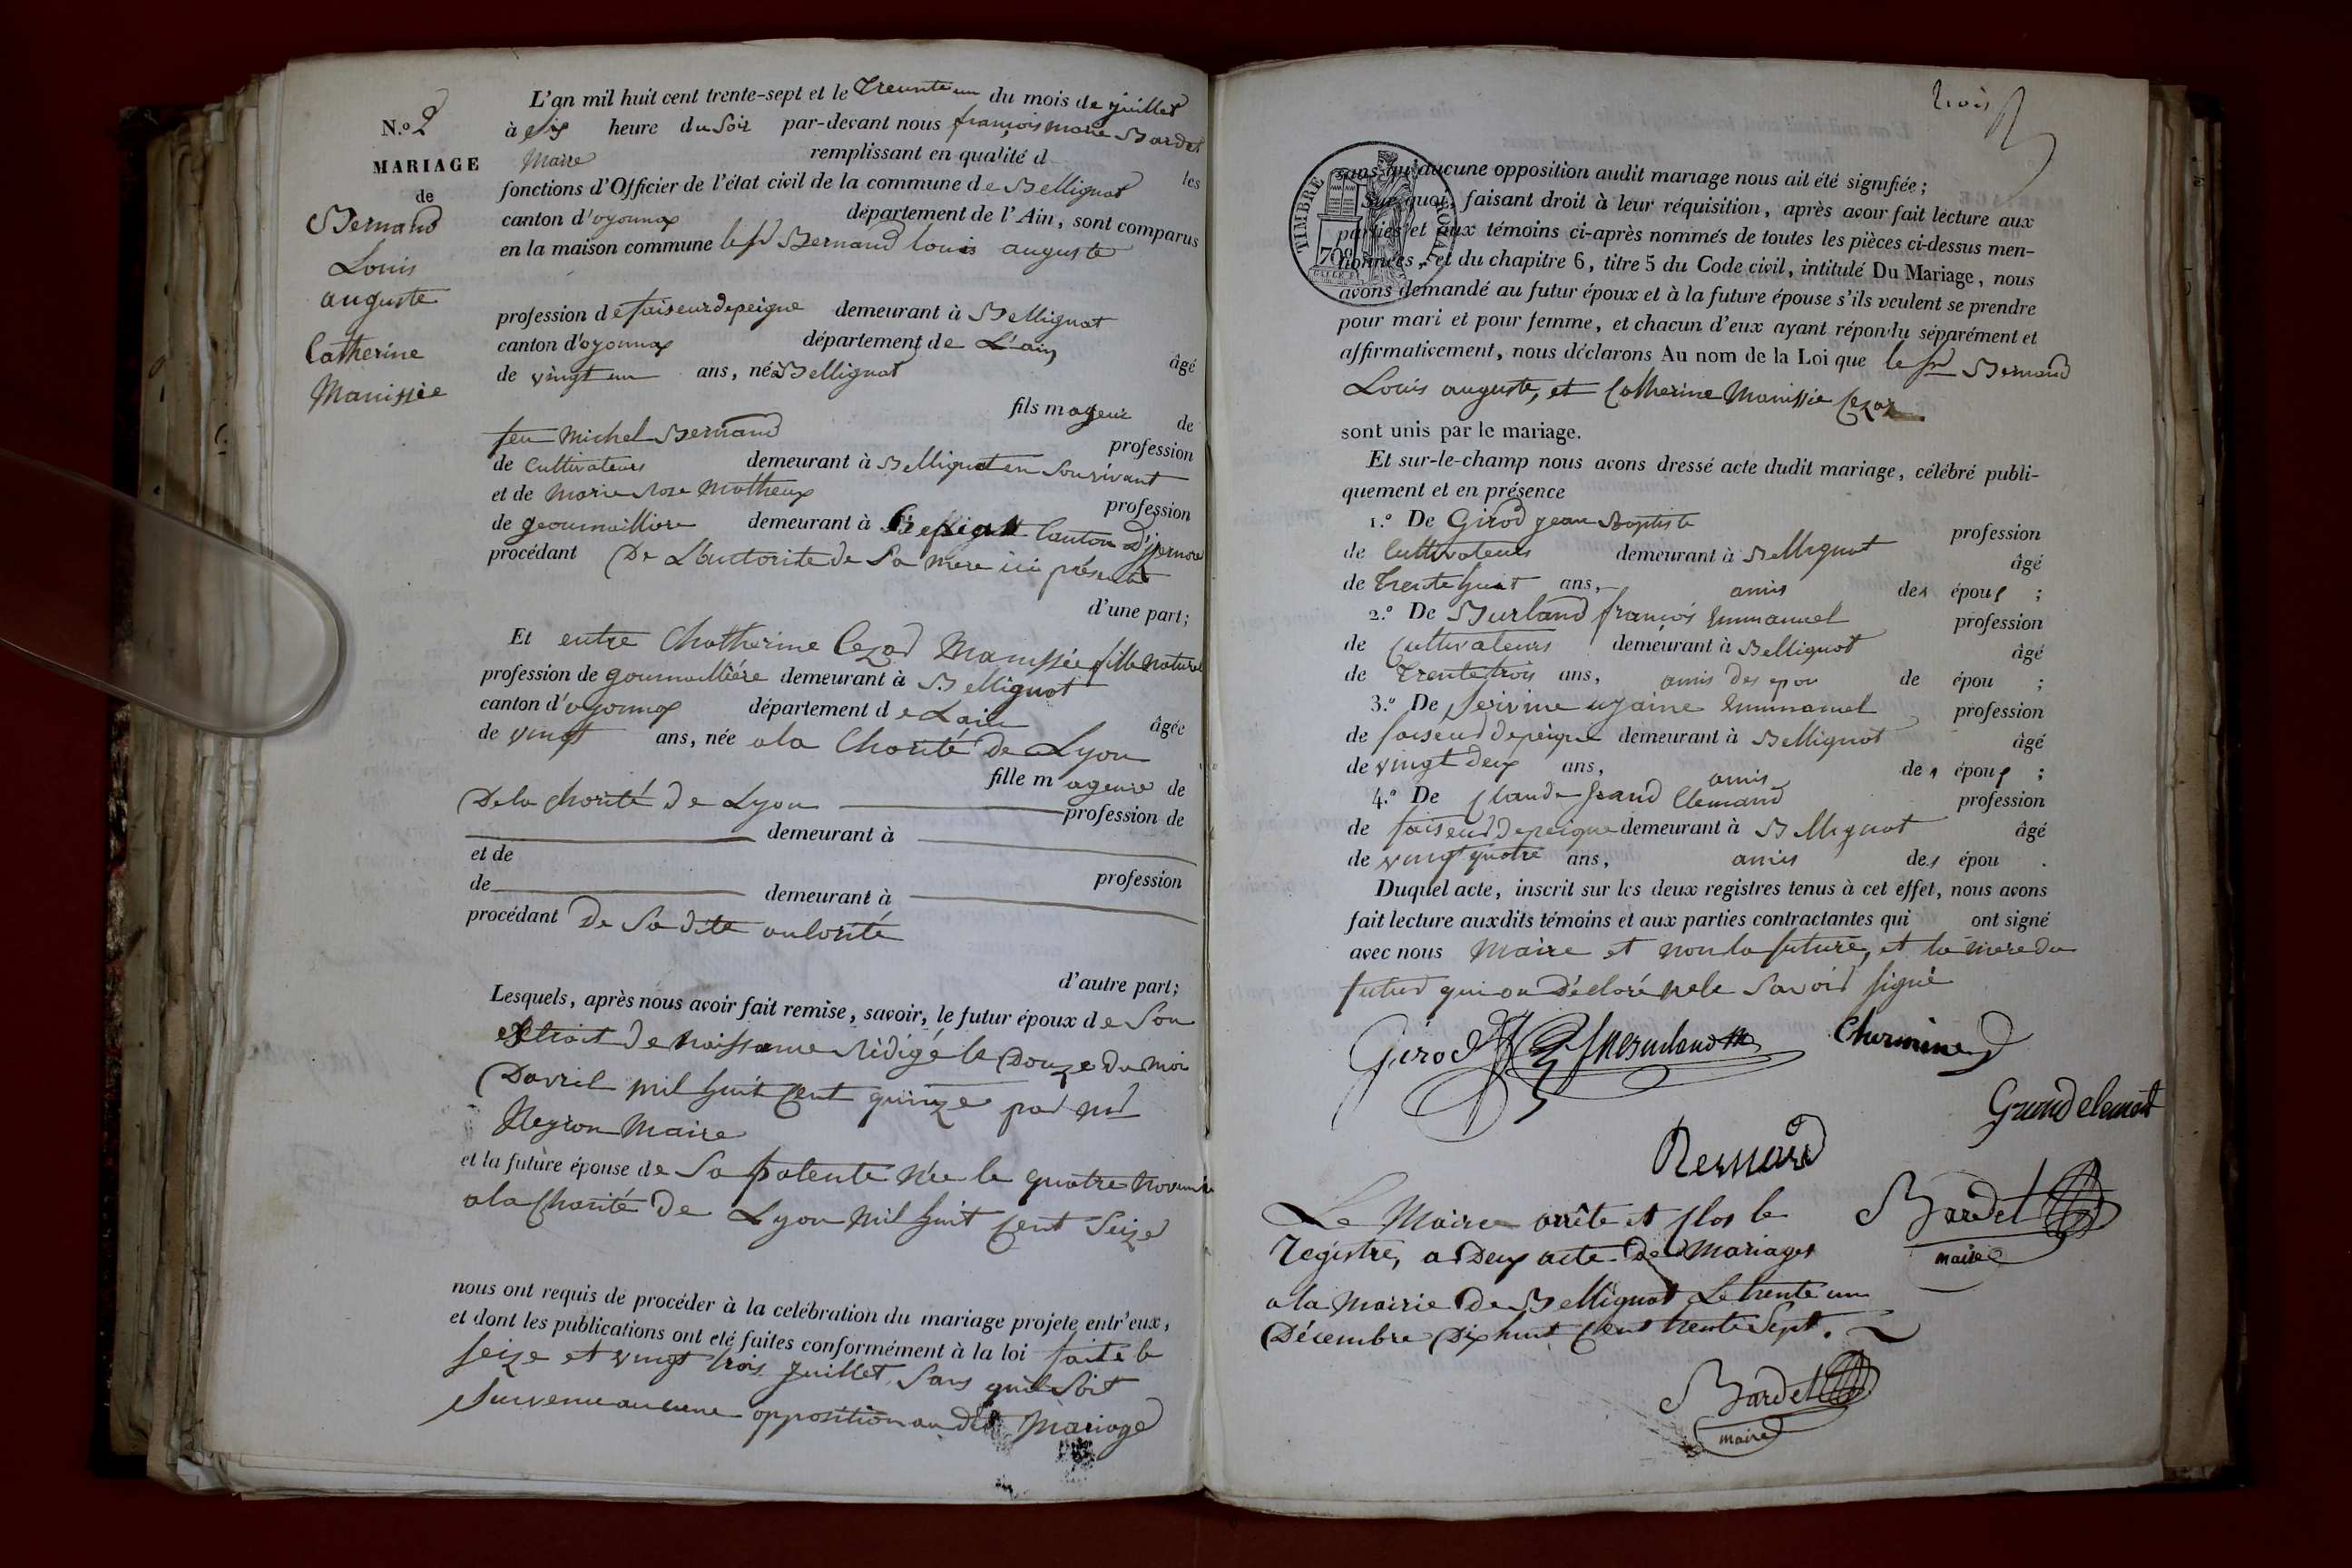 N.º 2
MARIAGE
de
Bernand
Louis
auguste
Catherine
Manissiée
L'an mil huit cent trente-sept et le trente un du mois de juillet
à six heure du soir par-devant nous françois marie Bardet
Maire remplissant en qualité d les
fonctions d'Officier de l'état civil de la commune de Bellignat
canton d'oyonnax département de l'Ain, sont comparus
en la maison commune le Sr Bernand louis auguste
profession de faiseur de peigne demeurant à Bellignat
canton d'oyonnax département de L'ain âgé
de vingt un ans, né à Bellignat
fils mageur de
feu Michel Bernand profession
de Cultivateur demeurant à Bellignat en Sonvivant
et de Marie Rose Matheux profession
de gournaillière demeurant à Canton d'
procédant De Lauctorité de Sa Mere ici présente
d'une part;
Et entre Chatherine Cezar Manissiée fille naturel
profession de gournaillière demeurant à Bellignat
canton d'oyonnax département de Lain âgée
de vingt ans, née a la Charité de Lyon
fille mageure de
De la charité de Lyon profession de
demeurant à
et de profession
de demeurant à
procédant De Sa dite autorité
d'autre part;
Lesquels, après nous avoir fait remise, savoir, le futur époux de Son
extrait de naissance rédigé le Douze du moi
Davril mil huit cent quinze par mr
Negron Maire
et la future épouse de Sa patente Née le quatre Novembre
a la Charité de Lyon Mil huit cent Seize
nous ont requis de procéder à la celébration du mariage projete entr'eux,
et dont les publications ont eté faites conformément à la loi faite le
seize et vingt trois juillet sans quil soit
survenu aucune opposition au dit Mariage
trois
TIMBRE ROYAL
70c
sans qu'aucune opposition audit mariage nous ait été signifiée;
Sur quoi, faisant droit à leur réquisition, après avoir fait lecture aux
parties et aux témoins ci-après nommés de toutes les pièces ci-dessus men-
tionnées, et du chapitre 6, titre 5 du Code civil, intitulé Du Mariage, nous
avons demandé au futur époux et à la future épouse s'ils veulent se prendre
pour mari et pour femme, et chacun d'eux ayant répondu séparément et
affirmativement, nous déclarons Au nom de la Loi que le Sr Bernand
Louis auguste, et Catherine Manissie Cezar
sont unis par le mariage.
Et sur-le-champ nous avons dressé acte dudit mariage, célébré publi-
quement et en présence
1.º De Girod jean Baptiste profession
de Cultivateur demeurant à Bellignat âgé
de trente huit ans, amis des époux ;
2.º De Burland françois Emmanuel profession
de Cultivateur demeurant à Bellignat âgé
de trente trois ans, amis des epou de épou ;
3.º De Emmanuel profession
de faiseur de peigne demeurant à Bellignat âgé
de vingt deux ans, amis des époux ;
4.º De Claude grand Clemand profession
de faiseur de peigne demeurant à Bellignat âgé
de vingt quatre ans, amis des épou .
Duquel acte, inscrit sur les deux registres tenus à cet effet, nous avons
fait lecture auxdits témoins et aux parties contractantes qui ont signé
avec nous Maire et non la future, et la mere du
futur qui on Déclaré ne le Savoir signé
Girod
Grandclement
Bernard
Bardet
maire
Le Maire arrête et clos le
Registre, a Deux acte de Mariages
a la Mairie de Bellignat Le trente un
Décembre Dix huit cent trente Sept.
Bardet
maire